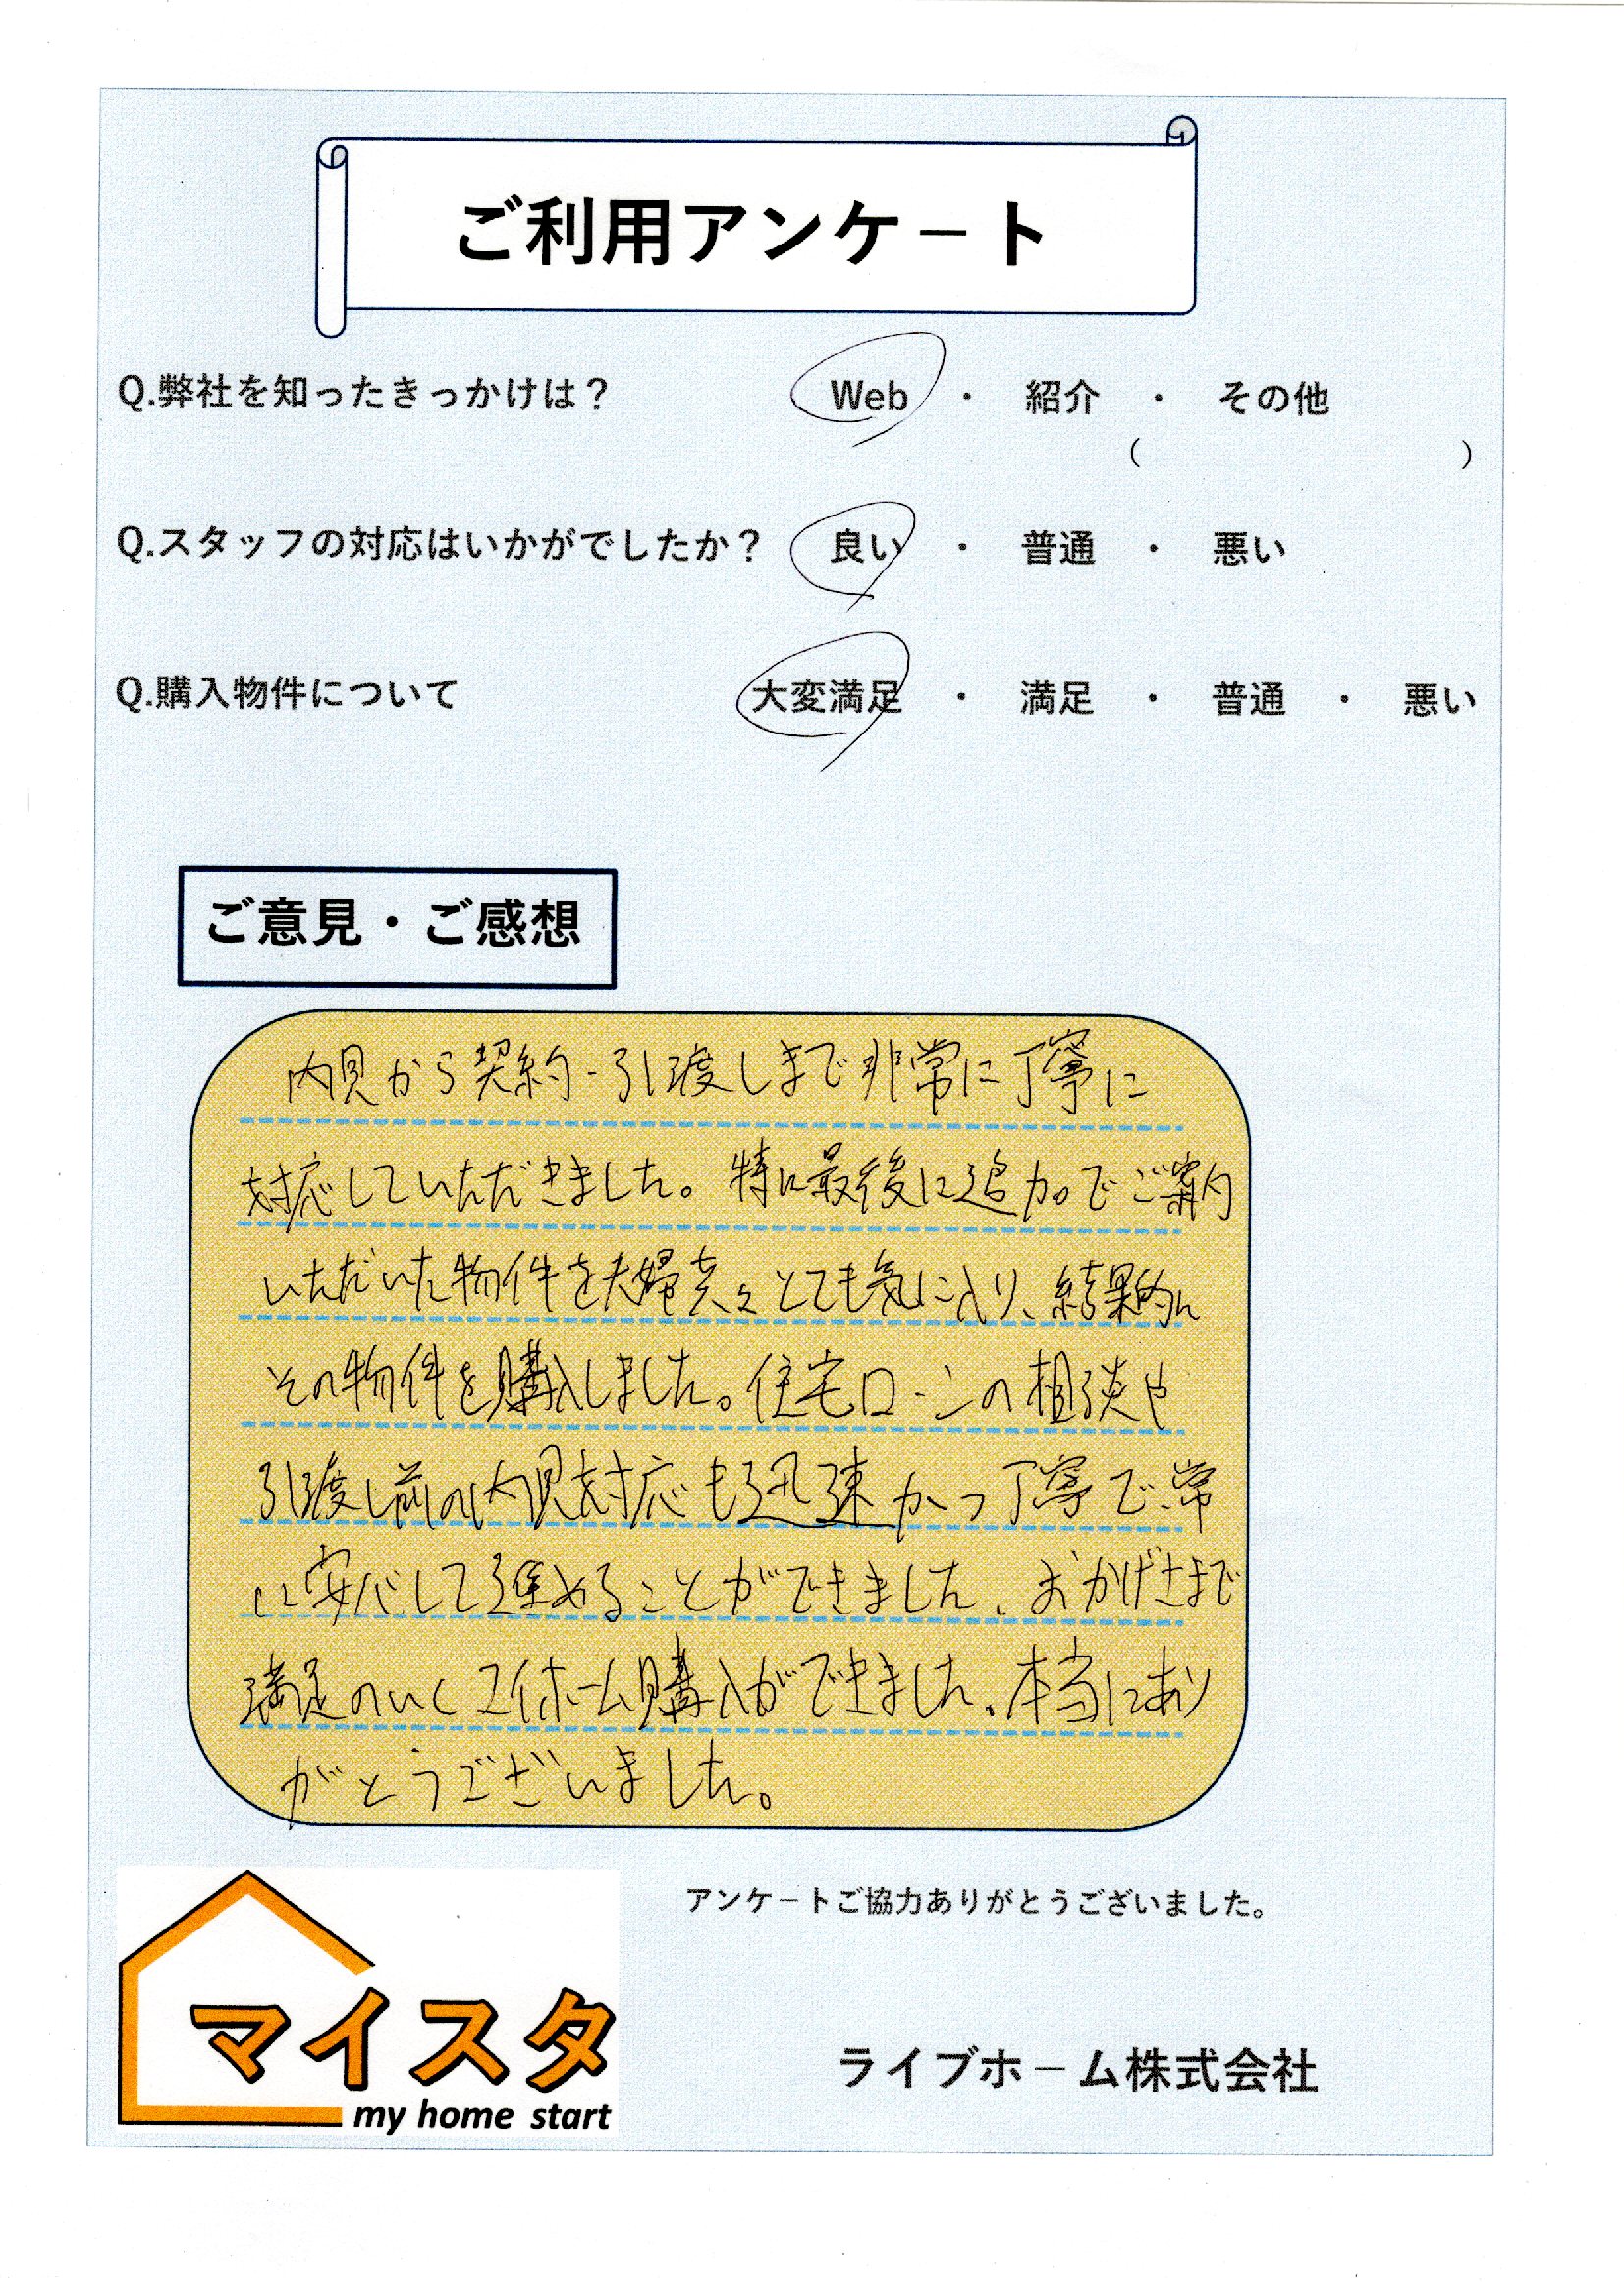 ご利用アンケート
Q.弊社を知ったきっかけは？ Web ・ 紹介 ・ その他
（ ）
Q.スタッフの対応はいかがでしたか？ 良い ・ 普通 ・ 悪い
Q.購入物件について 大変満足 ・ 満足 ・ 普通 ・ 悪い
ご意見・ご感想
内見から契約・引渡しまで非常に丁寧に
対応していただきました。特に最後に追加でご案内
いただいた物件を夫婦共々とても気に入り、結果的に
その物件を購入しました。住宅ローンの相談や
引渡し前の内見対応も迅速かつ丁寧で、常
に安心して進めることができました。おかげさまで
満足のいくマイホーム購入ができました。本当にあり
がとうございました。
アンケートご協力ありがとうございました。
マイスタ
my home start
ライブホーム株式会社